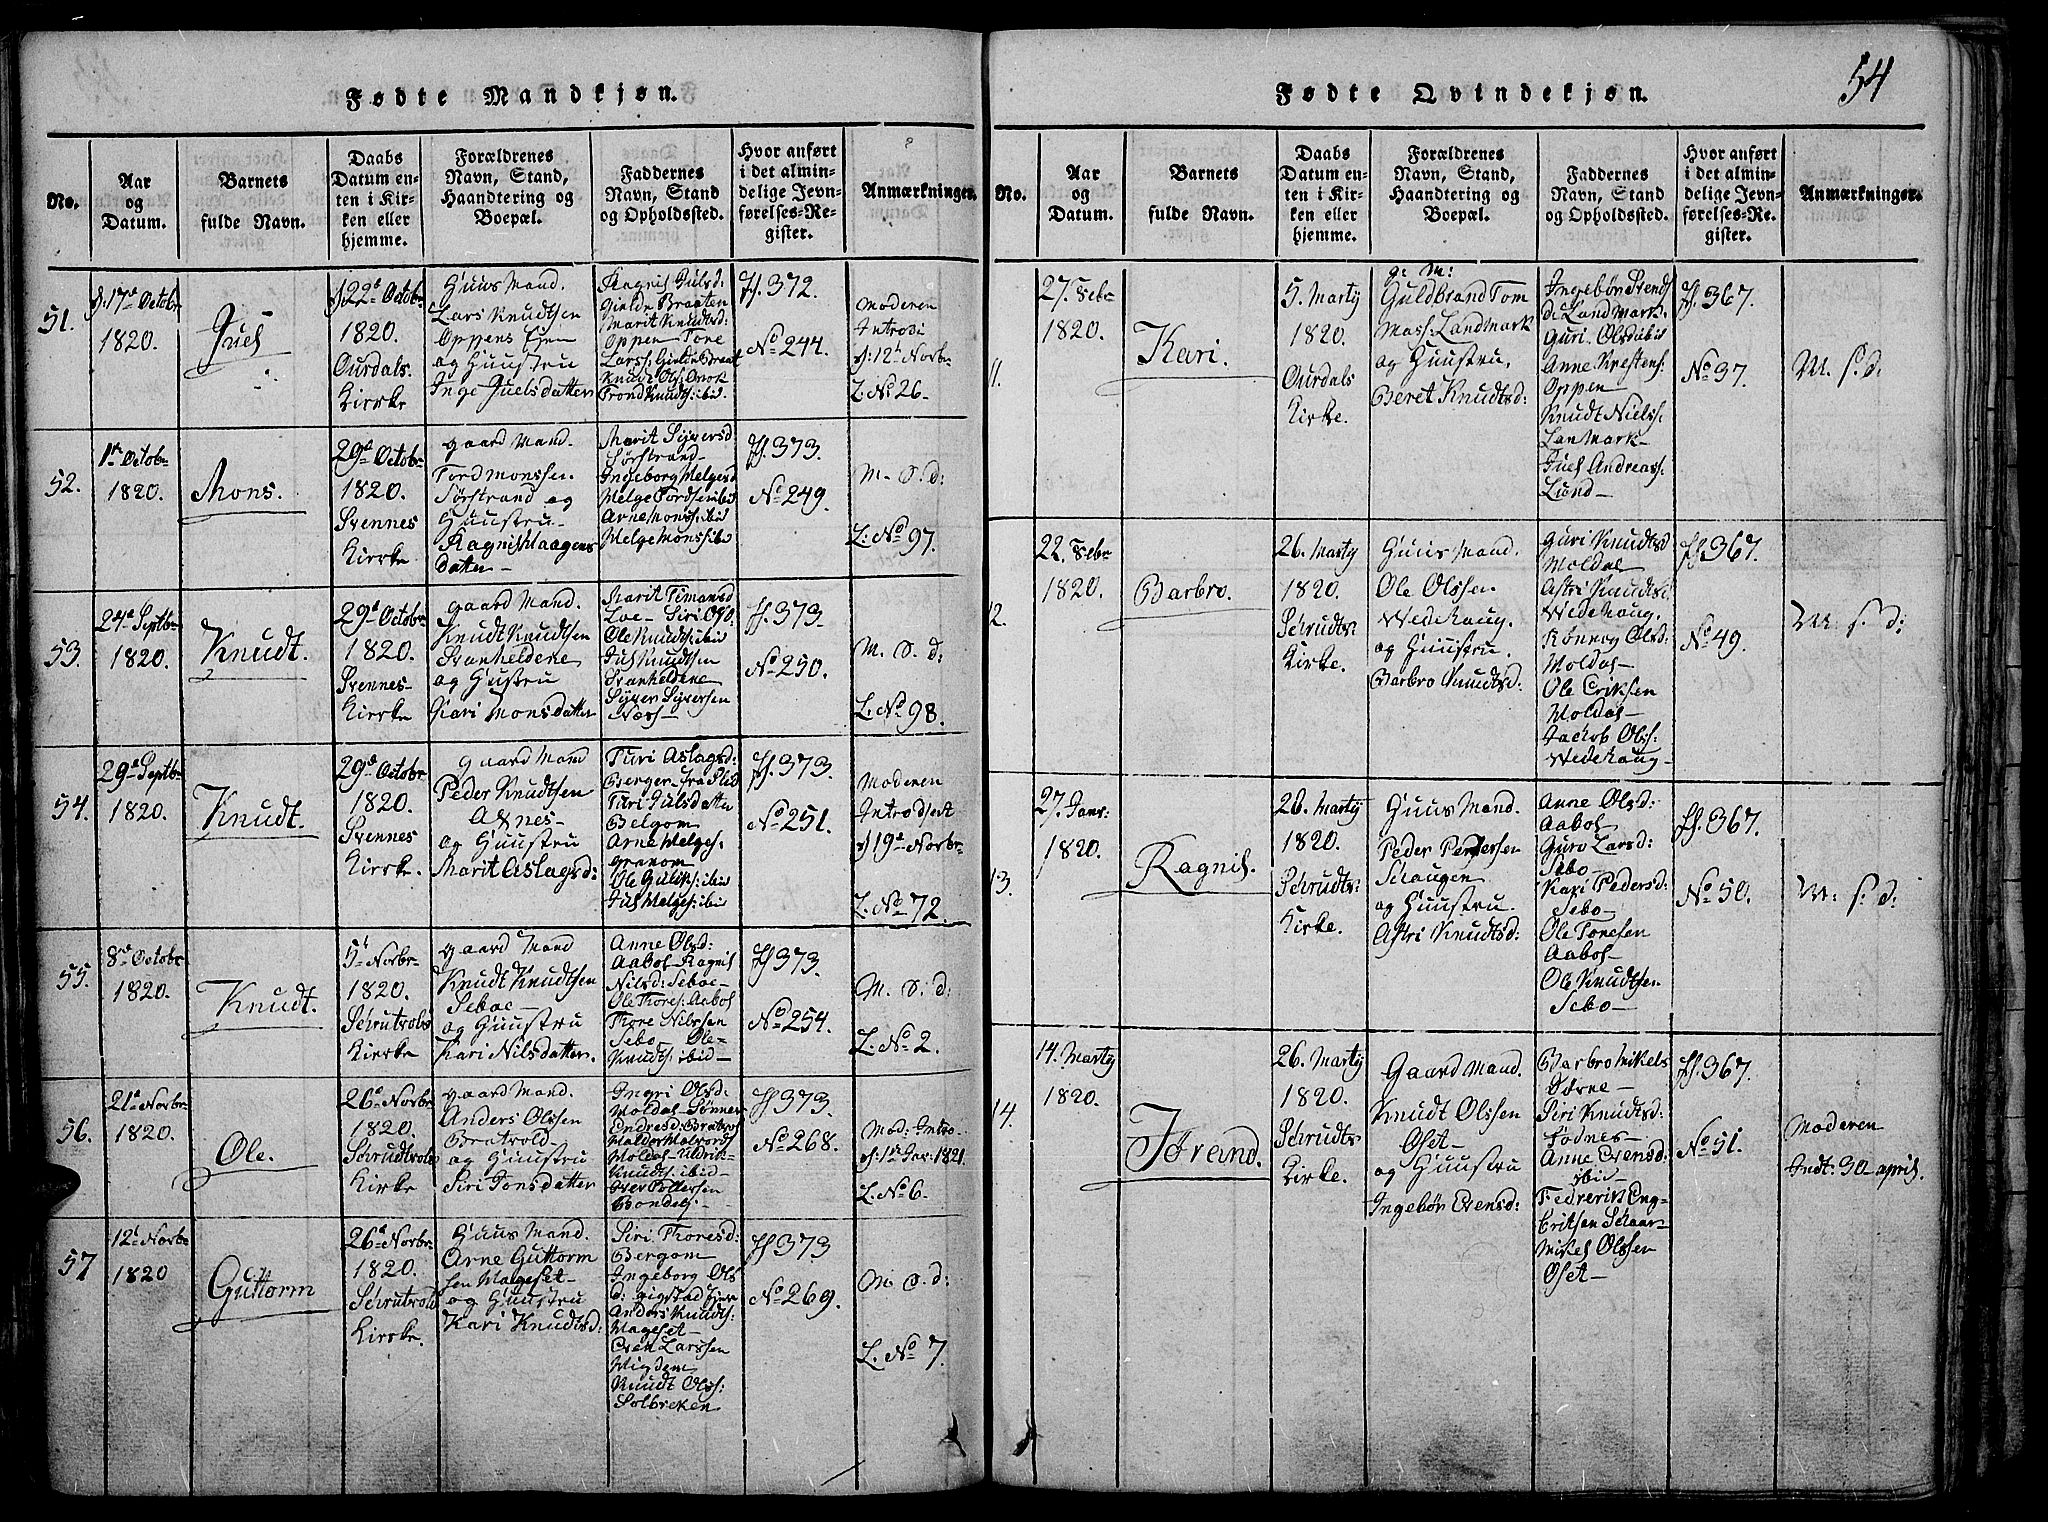 54
Fødte Mandkjøn.
No.
Aar
og
Datum.
Barnets
fulde Navn.
Daabs
Datum en-
ten i Kir-
ken eller
hjemme.
Forældrenes
Navn, Stand,
Haandtering og
Boepæl.
Faddernes
Navn, Stand
og Opholdssted.
Hvor anført
i det almin-
delige Jevn-
førelses-Re-
gister.
Anmærkninger.
51.
d: 17de Octobr
1820.
Juel
d 22de Octobr
1820.
Ourdals
Kirke
Huus Mand.
Lars Knudtsen
Oppens Ejen
og Huustru
Inge Juelsdatter
Ragnil Julsd:
Gielde Braaten
Marit Knudtsd:
Oppen Tore
Larss: Gielde Braat
Knudt Olss:
Trond Knudts: ibid
ff. 372.
No 244.
Moderen
Introd:
d: 12te Norbr
L: No 26
52.
1ste Octobr
1820.
Mons.
29de Octobr
1820.
Svennes
Kirke
gaard Mand.
Tord Monssen.
Sørstrand og
Huustru
Ragnil Haagens
datter
Marit Syversd
Sørstrand
Ingeborg Helgesd
Helge Tordsen ibid
Arne Monss: ibid
Helge Monss: ibid
ff. 373.
No 249.
M. S. d:
L: No 97.
53.
24de Septbr
1820.
Knudt.
29de Octobr
1820.
Svennes
Kirke
gaard Mand.
Knudt Knudtsen
Svanheldene
og Hustru
Kari Monsdatter
Marit Timansd
Loe Siri Olsd.
Ole Knudts: ibid
Jul Knudtsen
Svanheldene
Syver Syversen
Næss
ff. 373.
No 250.
M. S. d:
L: No 98.
54.
29de Septbr
1820.
Knudt.
29de Octobr
1820.
Svennes
Kirke.
gaard Mand
Peder Knudtsen
Axnes
og Huustru
Marit Aslagsd:
Turi Aslagsd:
Berger fra Slid
Turi Julsdatter
Belgom
Arne Helges:
granom
Ole Guliks: ibid
Jul Helges: ibid
ff. 373.
No 251.
Moderen
Introdsert
d 19de Norbr
L: No 72.
55.
8de Octobr
1820.
Knudt.
5te Norbr
1820.
Schrutvols
Kirke
gaard Mand
Knudt Knudtsen
Seboe
og Huustru
Kari Nilsdatter.
Anne Olsd:
Aabol Ragnil
Nilsd: Seboe
Ole Thores: Aabol
Thore Nilssen
Sebo Ole
Knudts: ibid
ff 373.
No 254.
M. S. d:
L: No 2.
56.
21de Norbr
1820.
Ole.
26de Norbr
1820.
Schrudtvols
Kirke
gaard Mand.
Anders Olssen
Bratvold
og Huustru
Siri Tonsdatter
Ingri Olsd:
Moldal Sønnev
Endresd: Bratvol
Haldor Halvords
Moldal Uldrik
Knudts: ibid
Iver Pettersen
Bondelj
ff 373.
No 268.
Mod: Intro
d: 1ste Jan: 1821
L: No 6.
57
12te Norbr
1820
Guttorm
26de Norbr
1820.
Schrutvols
Kirke.
Huus Mand.
Arne Guttorm
sen Mageset
og Huustru
Kari Knudtsd:
Siri Thoresd:
Bergom
Ingeborg Ols
d: gigstad Ejer
Anders Knudts:
Mageset
Even Larssen
Migdem
Knudt Olss:
Solbreken
ff 373
No 269.
M. S. d:
L: No 7.
Fødte Qvindekjøn.
No.
Aar
og
Datum.
Barnets
fulde Navn.
Daabs
Datum en-
ten i Kir-
ken eller
hjemme.
Forældrenes
Navn, Stand,
Haandtering og
Boepæl.
Faddernes
Navn, Stand
og Opholdssted.
Hvor anført
i det almin-
delige Jevn-
førelses-Re-
gister.
Anmærkninger.
11.
27. Febr
1820.
Kari.
5. Martÿ
1820.
Ourdals
Kirke.
g: M:
Guldbrand Tom
Mass: Landmark
og Huustru,
Beret Knudtsd:
Ingebør Svends
d: Landmark
Guri Olsd: ibid
Anne Krestens:
Oppen
Knudt Niels:
Lanmark
Juel Andreass:
Lund
ff. 367.
No 37.
M. S. d.
12.
22. Febr
1820.
Barbro.
26. Martÿ
1820.
Schrudts
Kirke.
Huus Mand.
Ole Olssen.
Wedehaug.
og Huustru.
Barbro Knudtsd:
Guri Knudtsd
Moldal
Astri Knudtsd:
Wedehaug.
Rønnog Olsd:
Moldal
Ole Eriksen
Moldal
Jackob Olss:
Wedehaug
ff. 367.
No 49.
M. S. d:
13.
27. Janr:
1820.
Ragnil.
26. Martÿ
1820.
Schrudts
Kirke.
Huus Mand.
Peder Pedersen
Schaugen
og Huustru.
Astri Knudtsd:
Anne Olsd:
Aabol
Guro Larsd:
Sebo
Kari Pedersd:
Sebo
Ole Toresen
Aabol
Ole Knudtsen
Sebo
ff. 367.
No 50.
M. S. d:
14.
14. Martÿ
1820.
Jørand.
26. Martÿ
1820.
Schrudts
Kirke.
Gaard Mand.
Knudt Olssen
Øset
og Huustru
Ingebør Evensd:
Barbro Mikels
Siri Knudtsd:
Fødnes
Anne Evensd:
ibid
Fredrerik Eng
Eriksen Schaar
Mikel Olssen
Øset
ff. 367.
No 51.
Moderen
Indt: 30 april.